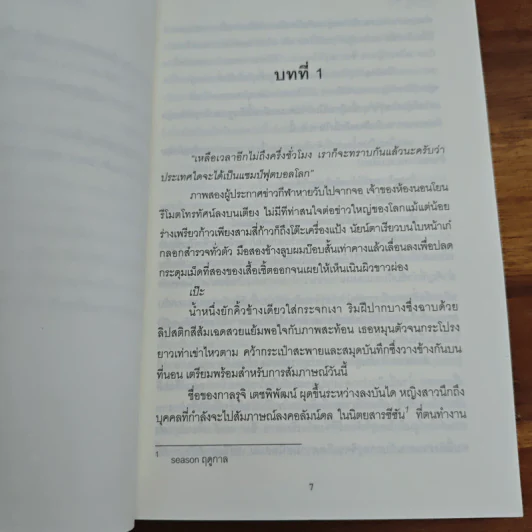 บทที่ 1
"เหลือเวลาอีกไม่ถึงครึ่งชั่วโมง เราก็จะทราบกันแล้วนะครับว่า
ประเทศใดจะได้เป็นแชมป์ฟุตบอลโลก"
ภาพสองผู้ประกาศข่าวกีฬาหายวับไปจากจอ เจ้าของห้องนอนโยน
รีโมตโทรทัศน์ลงบนเตียง ไม่มีทีท่าสนใจต่อข่าวใหญ่ของโลกแม้แต่น้อย
ร่างเพรียวก้าวเพียงสามสี่ก้าวก็ถึงโต๊ะเครื่องแป้ง นัยน์ตาเรียวบนใบหน้าเก๋
กลอกสำรวจทั่วตัว มือสองข้างลูบผมบ๊อบสั้นเท่าคางแล้วเลื่อนลงเพื่อปลด
กระดุมเม็ดที่สองของเสื้อเชิ้ตออกจนเผยให้เห็นเนินผิวขาวผ่อง
เป๊ะ
น้ำหนึ่งยักคิ้วข้างเดียวใส่กระจกเงา ริมฝีปากบางซึ่งฉาบด้วย
ลิปสติกสีส้มเฉดสวยแย้มพอใจกับภาพสะท้อน เธอหมุนตัวจนกระโปรง
ยาวเท่าเข่าไหวตาม คว้ากระเป๋าสะพายและสมุดบันทึกซึ่งวางข้างกันบน
ที่นอน เตรียมพร้อมสำหรับการสัมภาษณ์วันนี้
ชื่อของกาลรุจิ เตชพิพัฒน์ ผุดขึ้นระหว่างลงบันได หญิงสาวนึกถึง
บุคคลที่กำลังจะไปสัมภาษณ์ลงคอลัมน์ตล ในนิตยสารซีซัน¹ ที่ตนทำงาน
1 season ฤดูกาล
7